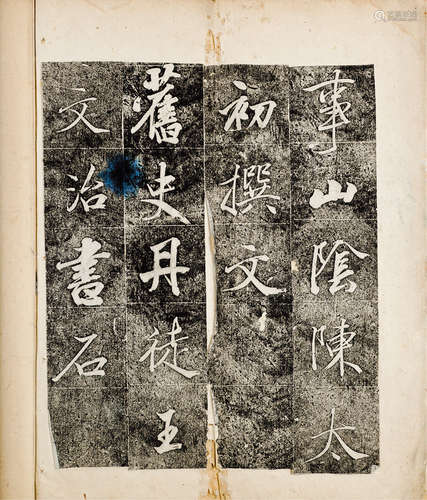 事山陰陳太
初撰文
舊史丹徒王
文治書石